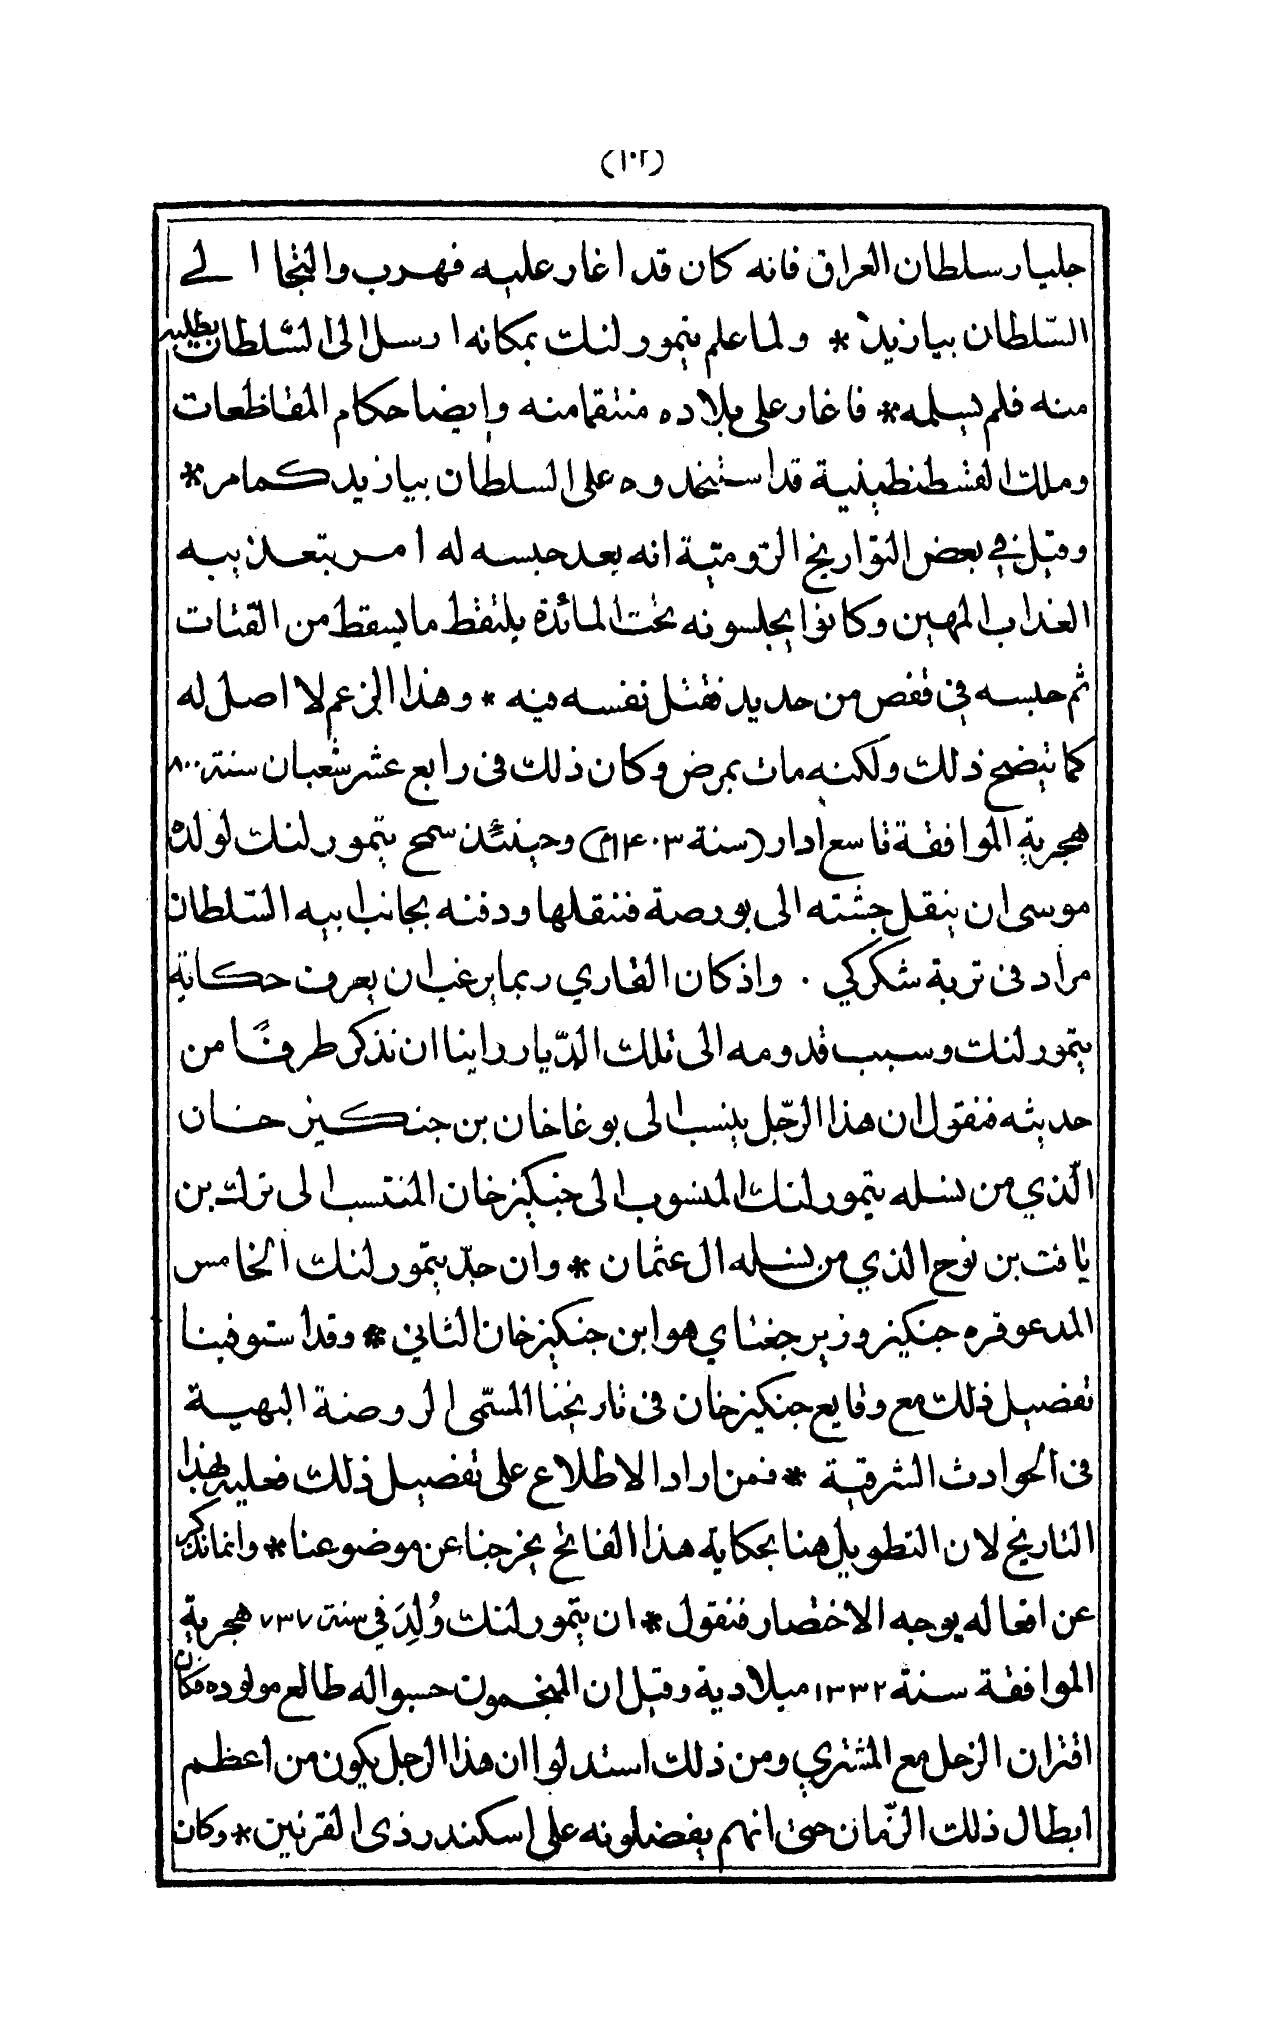 (١٠٢)
جليار سلطان العراق فانه كان قد اغار عليه فهرب والتجا الے
السّلطان بيازيد * ولما علم تيمور لنك بمكانه ارسل الى السّلطان يطلبه
منه فلم يسلمه * فاغار على بلاده منتقما منه وايضا حكام المقاطعات
وملك القسطنطينية قد استنجدوه على السلطان بيازيد كما مر *
وقيل في بعض التواريخ الرّوميّة انه بعد حبسه له امر بتعذيبه
العذاب المهين وكانوا يجلسونه تحت المائدة يلتقط ما يسقط من الفتات
ثم حبسه في قفص من حديد فقتل نفسه فيه * وهذا الزعم لا اصل له
كما يتضح ذلك ولكنه مات بمرض وكان ذلك في رابع عشر شعبان سنة ٨٠٠
هجرية الموافقة تاسع ادار (سنة ١٤٠٣م) وحينئذ سمح تيمور لنك لولده
موسى ان ينقل جثته الى بورصة فنقلها ودفنه بجانب ابيه السّلطان
مراد في تربة شكركي . واذ كان القاري ربما يرغب ان يعرف حكاية
تيمور لنك وسبب قدومه الى تلك الدّيار راينا ان نذكر طرفًا من
حديثه فنقول ان هذا الرّجل ينسب الى بوغاخان بن جنكيز خان
الّذي من نسله تيمور لنك المنسوب الى جنكيز خان المنتسب الى ترك بن
يافت بن نوح الذي من نسله ال عثمان * وان جدّ تيمور لنك الخامس
المدعو قره جنكيز وزير جغتاي هو ابن جنكيز خان الثاني * وقد استوفينا
تفصيل ذلك مع وقايع جنكيز خان في تاريخنا المسّمى الروضة البهية
في الحوادث الشرقية * فمن اراد الاطلاع على تفصيل ذلك فعليه بهذا
التاريخ لان التطويل هنا بحكاية هذا الفاتح يخرجنا عن موضوعنا * وانما نذكر
عن افعاله بوجه الاختصار فنقول * ان تيمور لنك وُلِدَ في سنة ٧٣٧ هجرية
الموافقة سنة ١٣٣٢ ميلادية وقيل ان المنجمون حسبوا له طالع مولوده فكان
اقتران الزحل مع المشتري ومن ذلك استدلوا ان هذا الرجل يكون من اعظم
ابطال ذلك الزّمان حتى انهم يفضلونه على اسكندر ذى القرنين * وكان